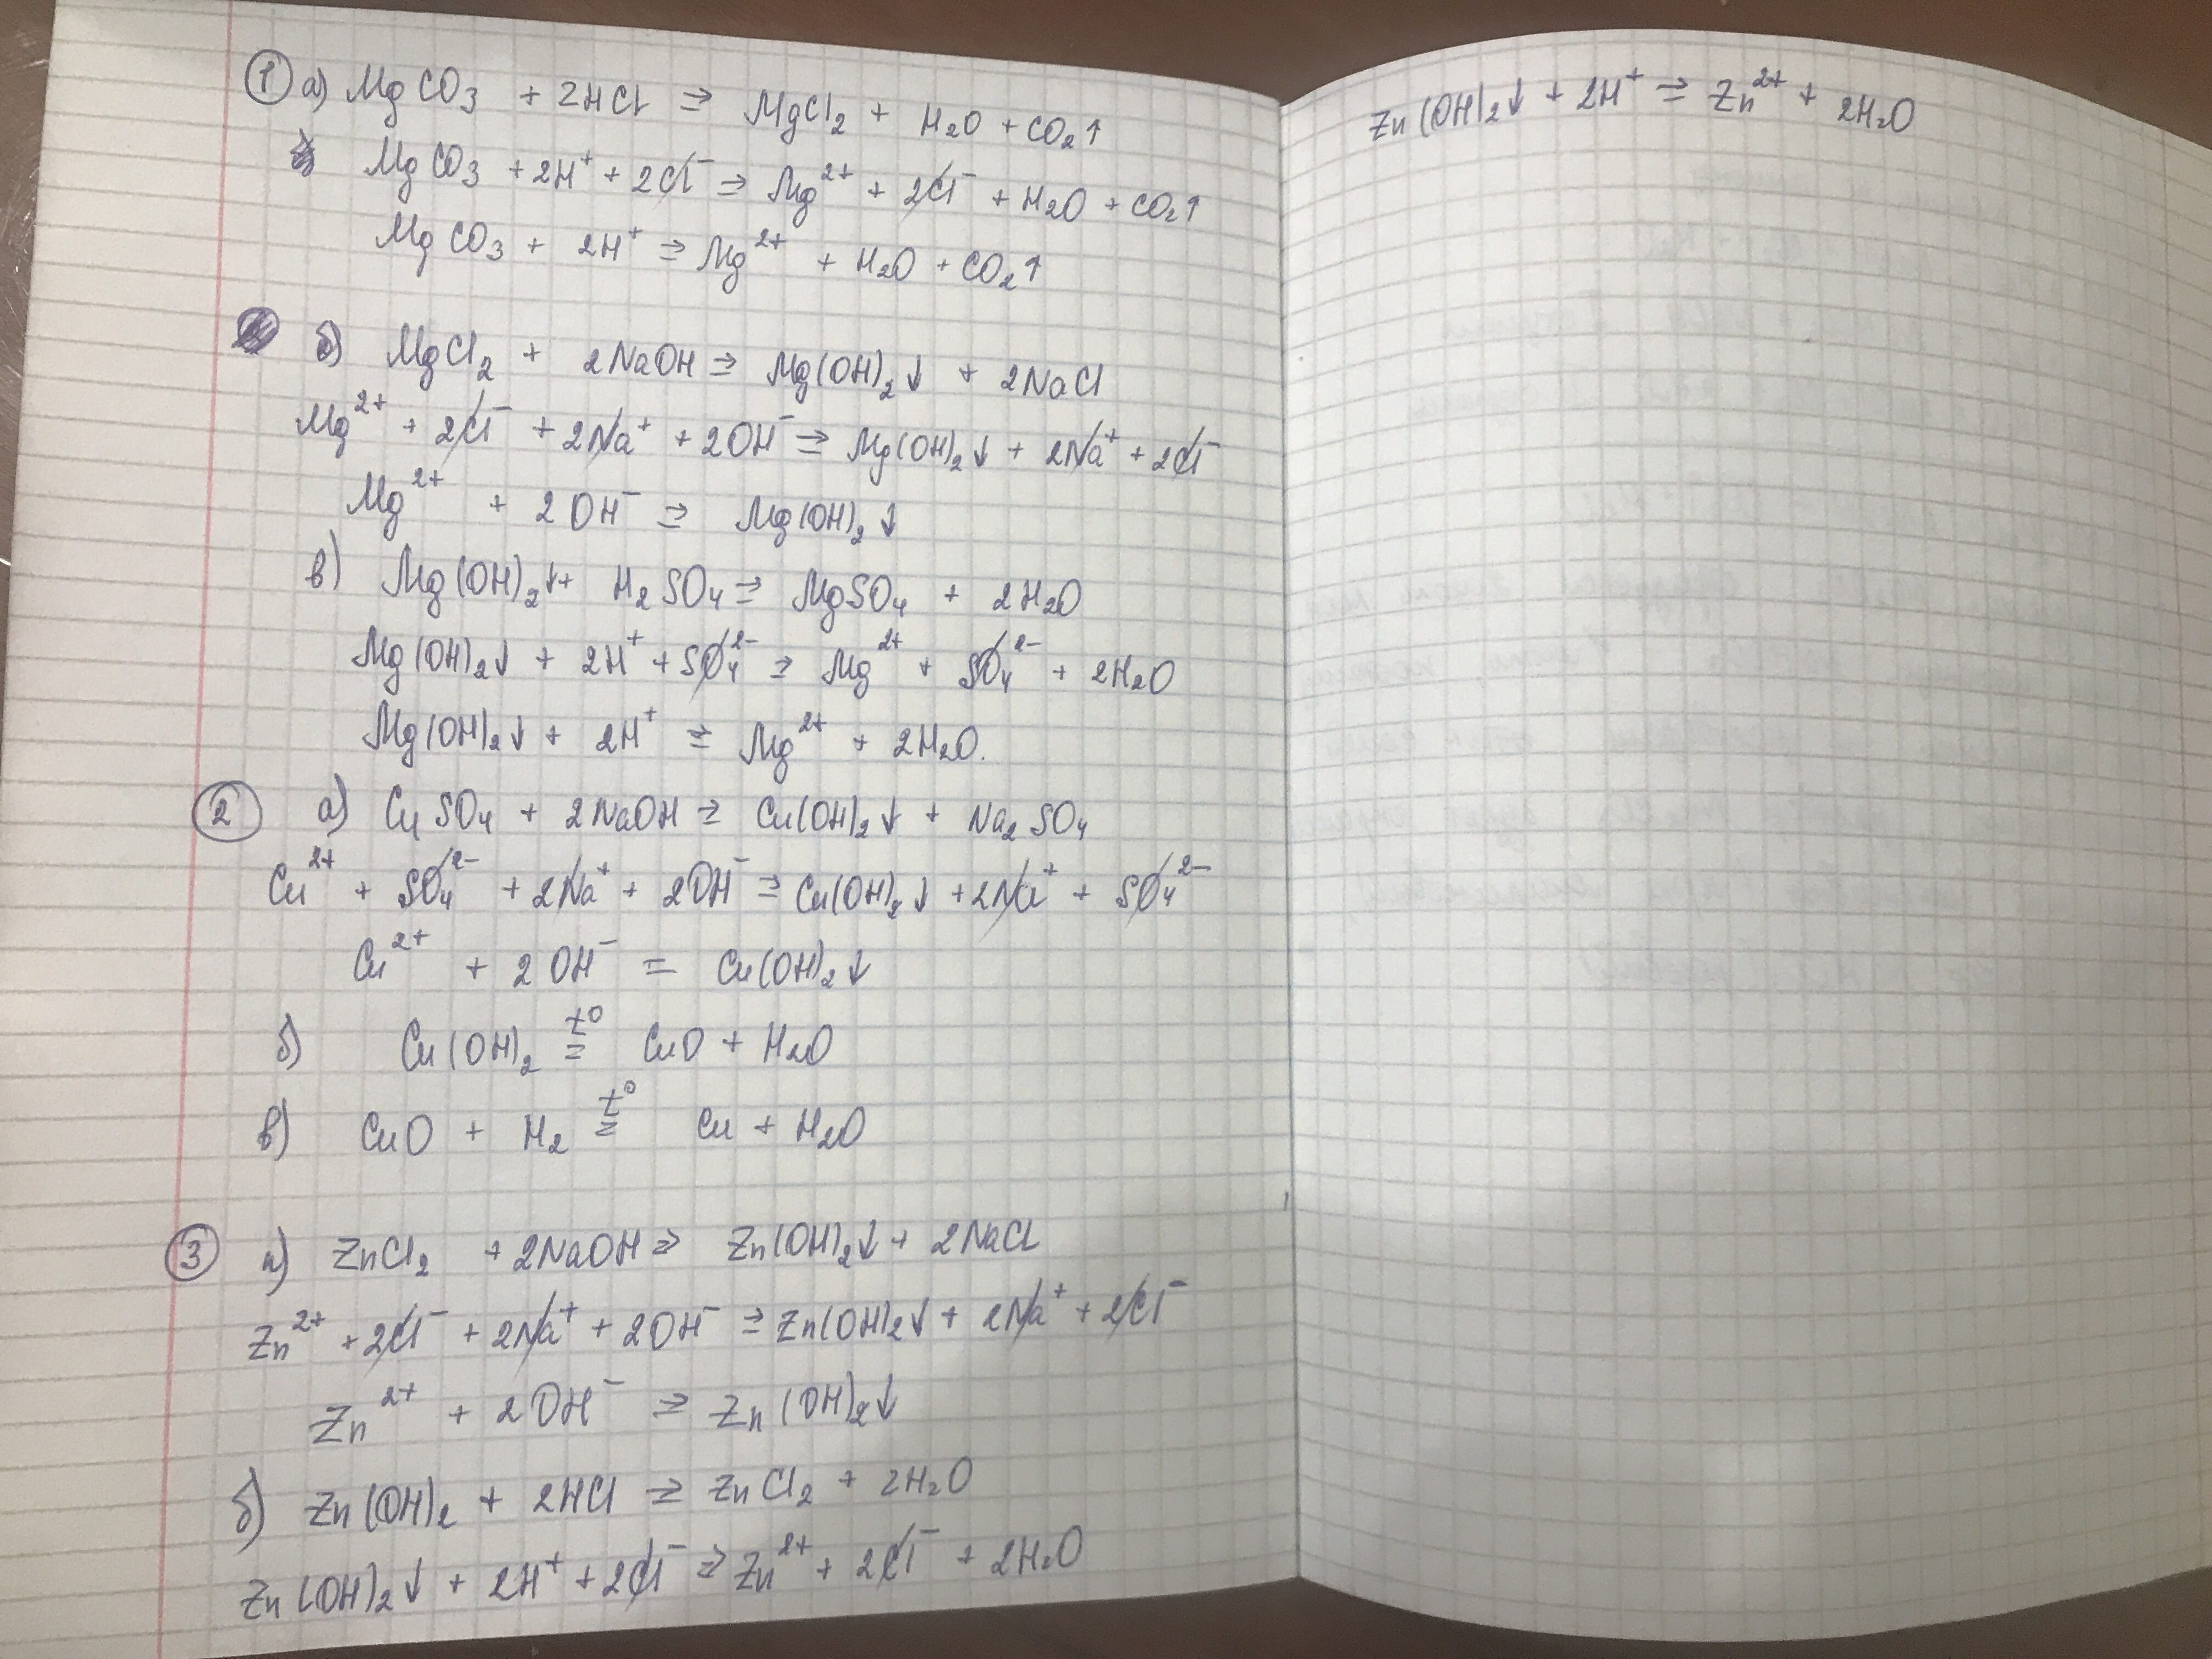 ① а) MgCO₃ + 2HCl ⇒ MgCl₂ + H₂O + CO₂↑
MgCO₃ + 2H⁺ + 2Cl⁻ ⇒ Mg²⁺ + 2Cl⁻ + H₂O + CO₂↑
MgCO₃ + 2H⁺ ⇒ Mg²⁺ + H₂O + CO₂↑
б) MgCl₂ + 2NaOH ⇒ Mg(OH)₂↓ + 2NaCl
Mg²⁺ + 2Cl⁻ + 2Na⁺ + 2OH⁻ ⇒ Mg(OH)₂↓ + 2Na⁺ + 2Cl⁻
Mg²⁺ + 2OH⁻ ⇒ Mg(OH)₂↓
в) Mg(OH)₂↓ + H₂SO₄ ⇒ MgSO₄ + 2H₂O
Mg(OH)₂↓ + 2H⁺ + SO₄²⁻ ⇒ Mg²⁺ + SO₄²⁻ + 2H₂O
Mg(OH)₂↓ + 2H⁺ ⇒ Mg²⁺ + 2H₂O.
② а) CuSO₄ + 2NaOH ⇒ Cu(OH)₂↓ + Na₂SO₄
Cu²⁺ + SO₄²⁻ + 2Na⁺ + 2OH⁻ ⇒ Cu(OH)₂↓ + 2Na⁺ + SO₄²⁻
Cu²⁺ + 2OH⁻ = Cu(OH)₂↓
б) Cu(OH)₂ =t⁰ CuO + H₂O
в) CuO + H₂ =t⁰ Cu + H₂O
③ а) ZnCl₂ + 2NaOH ⇒ Zn(OH)₂↓ + 2NaCl
Zn²⁺ + 2Cl⁻ + 2Na⁺ + 2OH⁻ ⇒ Zn(OH)₂↓ + 2Na⁺ + 2Cl⁻
Zn²⁺ + 2OH⁻ ⇒ Zn(OH)₂↓
б) Zn(OH)₂ + 2HCl ⇒ ZnCl₂ + 2H₂O
Zn(OH)₂↓ + 2H⁺ + 2Cl⁻ ⇒ Zn²⁺ + 2Cl⁻ + 2H₂O
Zn(OH)₂↓ + 2H⁺ ⇒ Zn²⁺ + 2H₂O